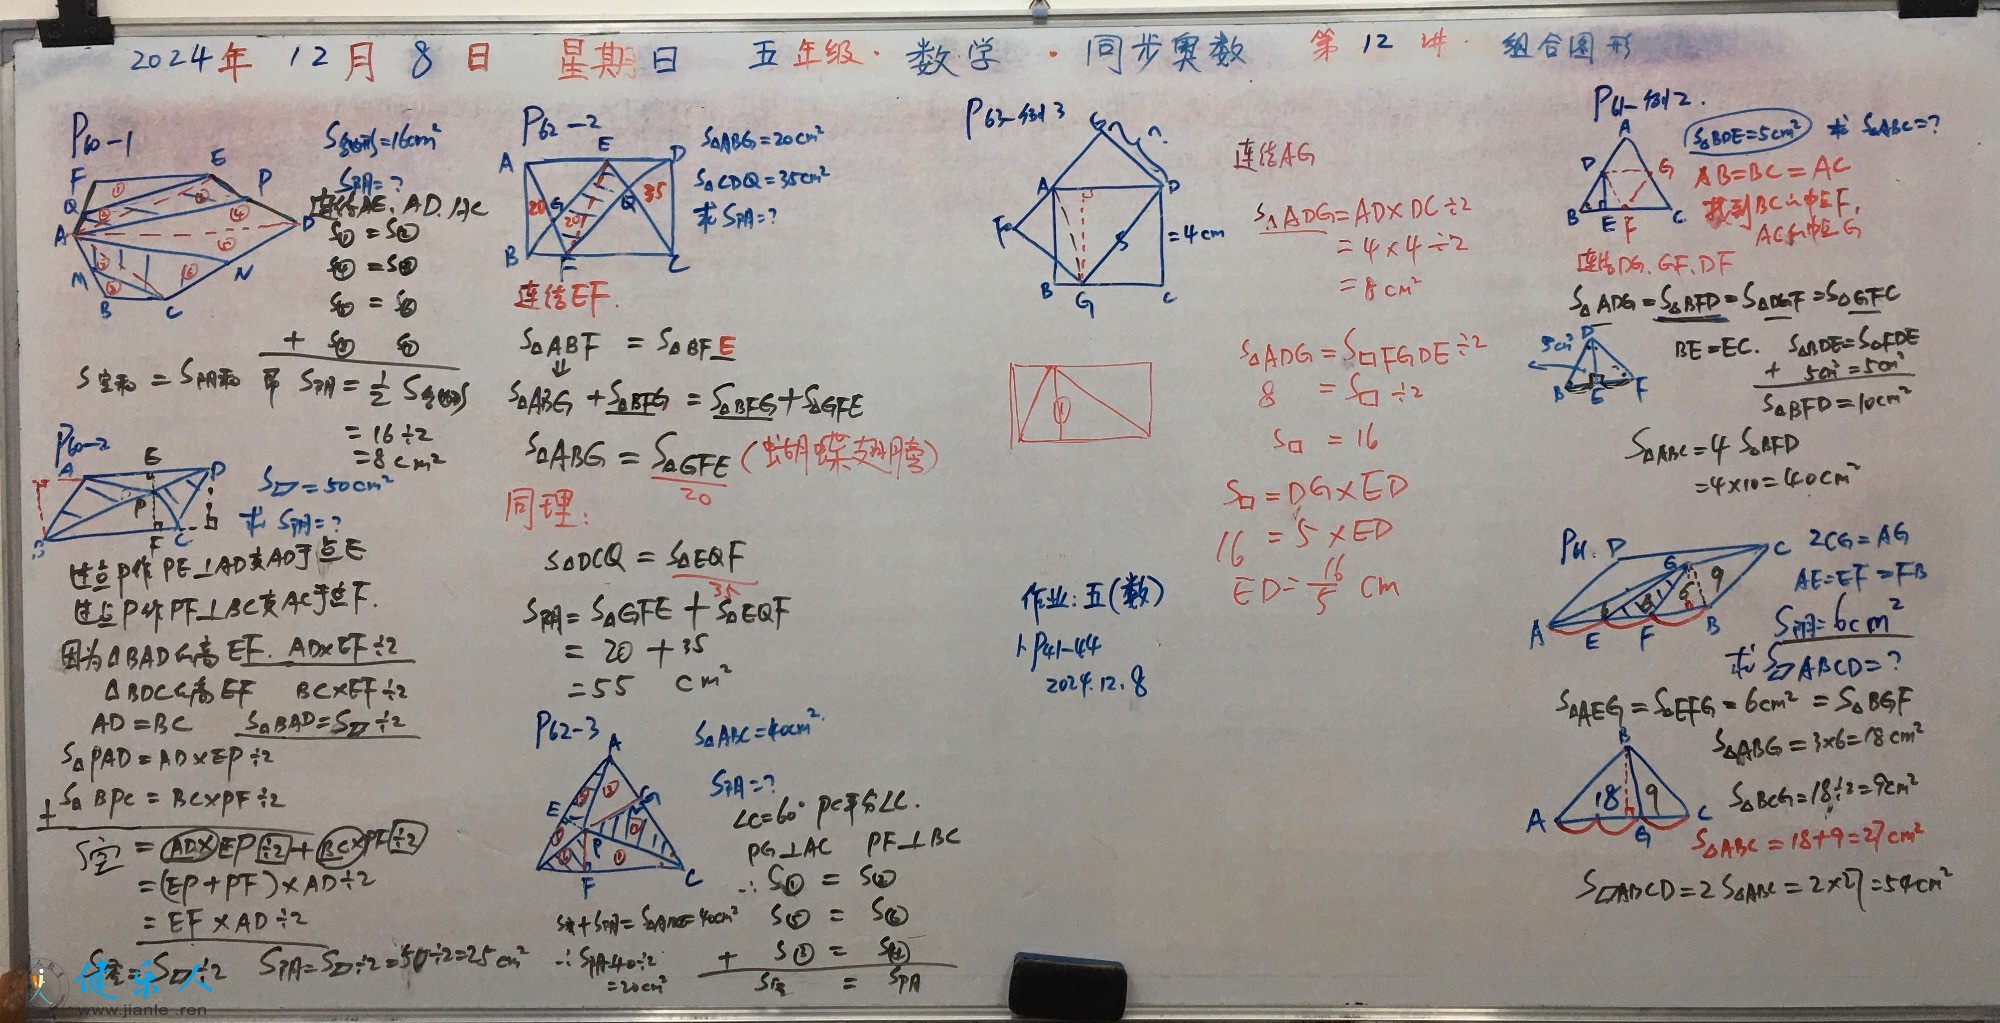 2024年 12月 8日 星期日 五年级·数学·同步奥数 第12讲·组合图形
P60-1
S多边形=16cm²
S阴=?
连结AE、AD、AC
F
E
P
Q
A
D
M
N
B
C
S空和 = S阴和 即 S阴 = 1/2 S多边形
= 16÷2
= 8cm²
P60-2
A
E
D
P
B
F
C
S▱=50cm²
求 S阴=?
过点P作PE⊥AD交AD于点E
过点P作PF⊥BC交AC于点F.
因为△BAD的高EF. AD×EF÷2
△BDC的高EF BC×EF÷2
AD=BC S△BAD=S▱÷2
S△PAD=AD×EP÷2
+ S△BPC=BC×PF÷2
S空 = AD×EP÷2+BC×PF÷2
=(EP+PF)×AD÷2
= EF×AD÷2
S空=S▱÷2 S阴=S▱÷2=50÷2=25cm²
P62-2
A
E
D
20
G
20
Q
35
B
F
C
S△ABG=20cm²
S△CDQ=35cm²
求 S阴=?
连结EF.
S△ABF = S△BFE
⇓
S△ABG+S△BFG=S△BFG+S△GFE
S△ABG = S△GFE(蝴蝶翅膀)
20
同理:
S△DCQ = S△EQF
35
S阴 = S△GFE + S△EQF
= 20 + 35
= 55 cm²
P62-3
S△ABC=40cm²
S阴=?
∠C=60° PC平分∠C.
PG⊥AC PF⊥BC
A
E
G
P
F
C
S空+S阴=S△ABC=40cm²
∴S阴=40÷2
=20cm²
S空 = S阴
P63-例3
?
A
D
F
5
=4cm
B
G
C
连结AG
S△ADG=AD×DC÷2
= 4×4÷2
= 8cm²
S△ADG=S□FGDE÷2
8 = S□÷2
S□ = 16
S□=DG×ED
16 = 5×ED
ED=16/5 cm
作业:五(数)
P41-44
2024.12.8
P61-例2.
S△BDE=5cm² 求 S△ABC=?
A
D
G
B
E
F
C
AB=BC=AC
找到BC的中点F,
AC的中点G
连结DG、GF、DF
S△ADG=S△BFD=S△DGF=S△GFC
5cm²
D
B
E
F
BE=EC. S△BDE=S△FDE
+ 5cm²=5cm²
S△BFD=10cm²
S△ABC=4S△BFD
=4×10=40cm²
P61.
D
C
G
9
6
A
E
F
B
2CG=AG
AE=EF=FB
S阴=6cm²
求 S▱ABCD=?
S△AEG=S△EFG=6cm²=S△BGF
S△ABG=3×6=18cm²
S△BCG=18÷2=9cm²
B
18
9
A
G
C
S△ABC=18+9=27cm²
S▱ABCD=2S△ABC=2×27=54cm²
健乐人
www.jianle.ren